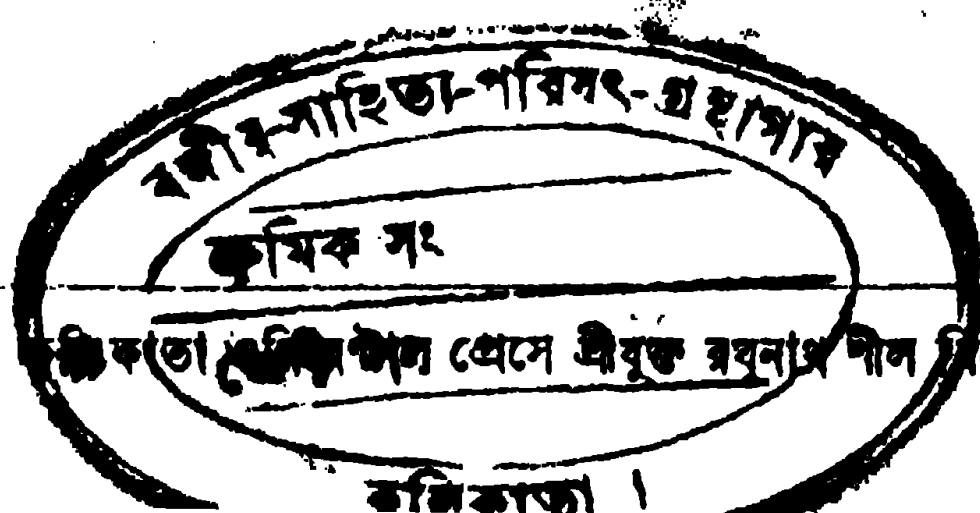 বঙ্গীয়-সাহিত্য-পরিষৎ-গ্রন্থাগার
ক্রমিক সং
কলিকাতা ওরিএণ্টাল প্রেসে শ্রীযুক্ত রঘুনাথ শীল
কলিকাতা।